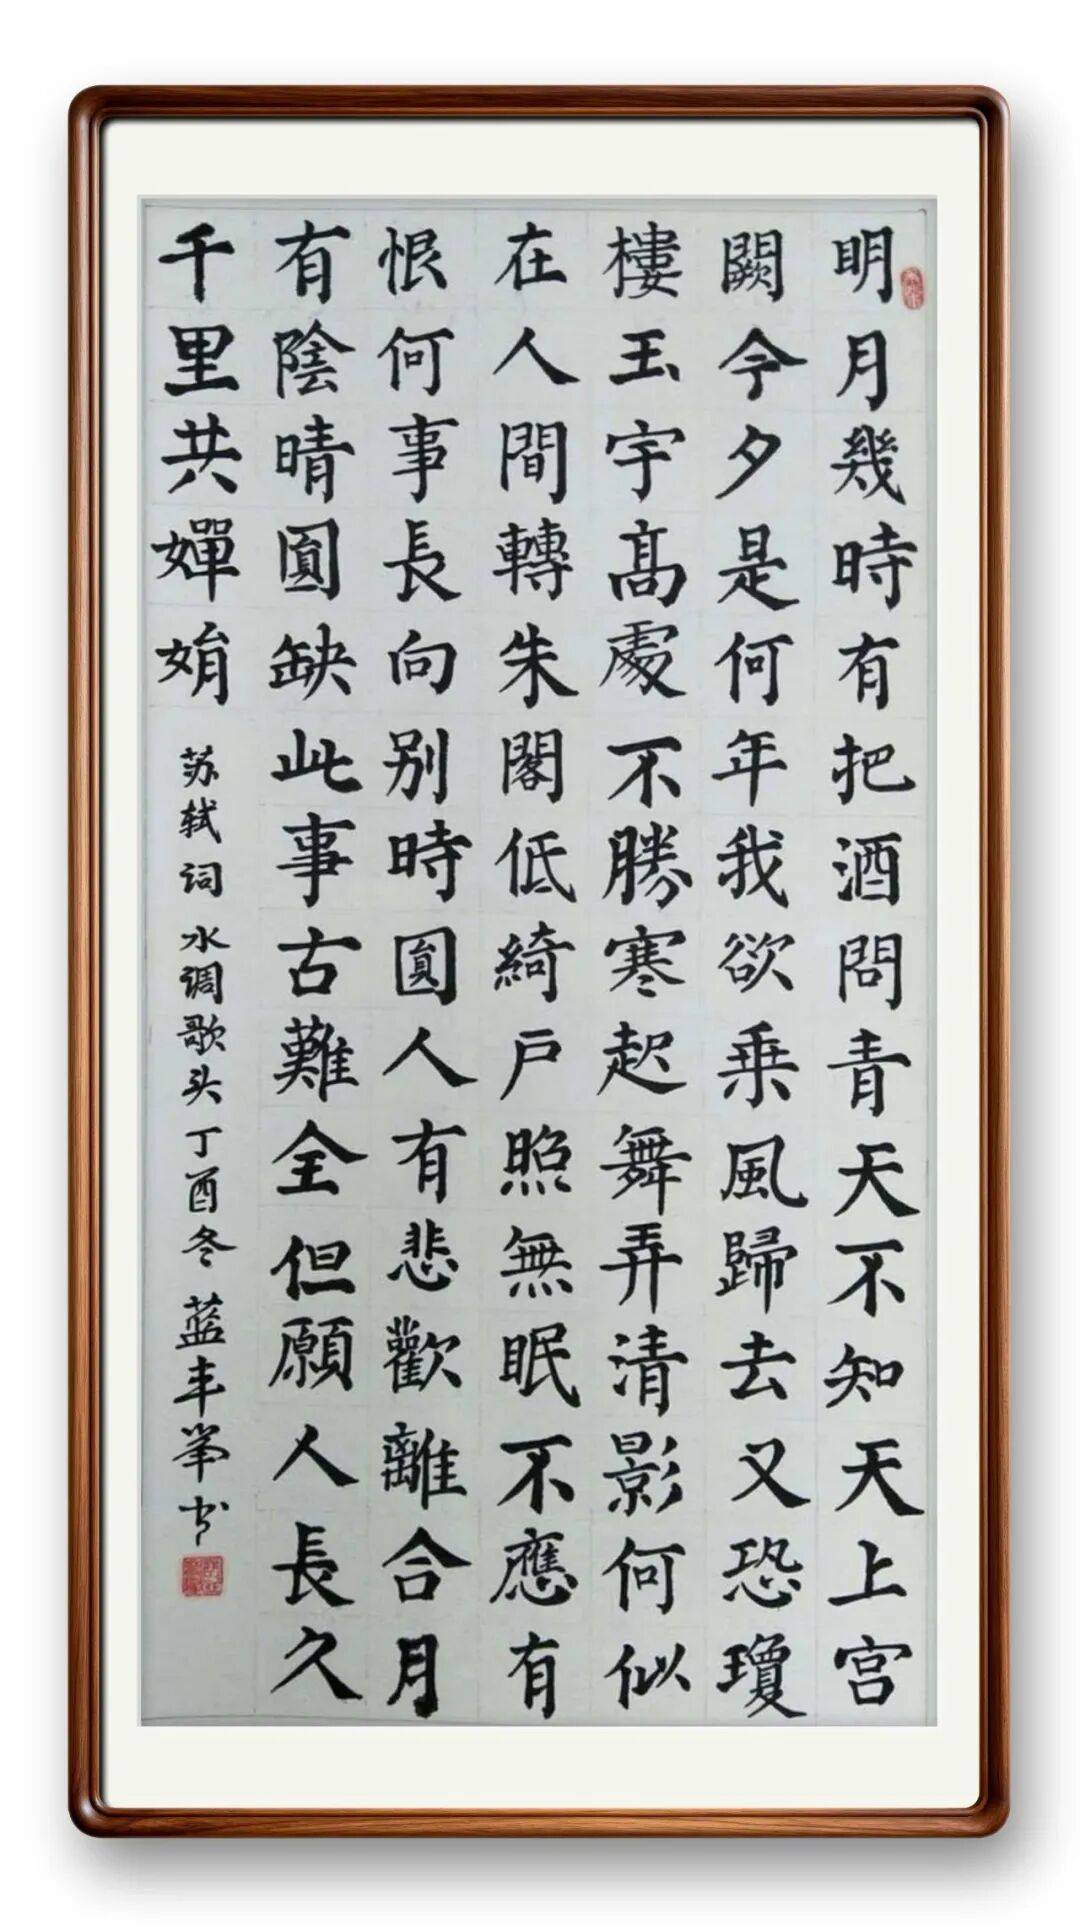 明月幾時有把酒問青天不知天上宫
闕今夕是何年我欲乗風歸去又恐瓊
樓玉宇髙處不勝寒起舞弄清影何似
在人間轉朱閣低綺户照無眠不應有
恨何事長向别時圓人有悲歡離合月
有陰晴圓缺此事古難全但願人長久
千里共嬋娟 苏轼词 水调歌头 丁酉冬 蓝丰书